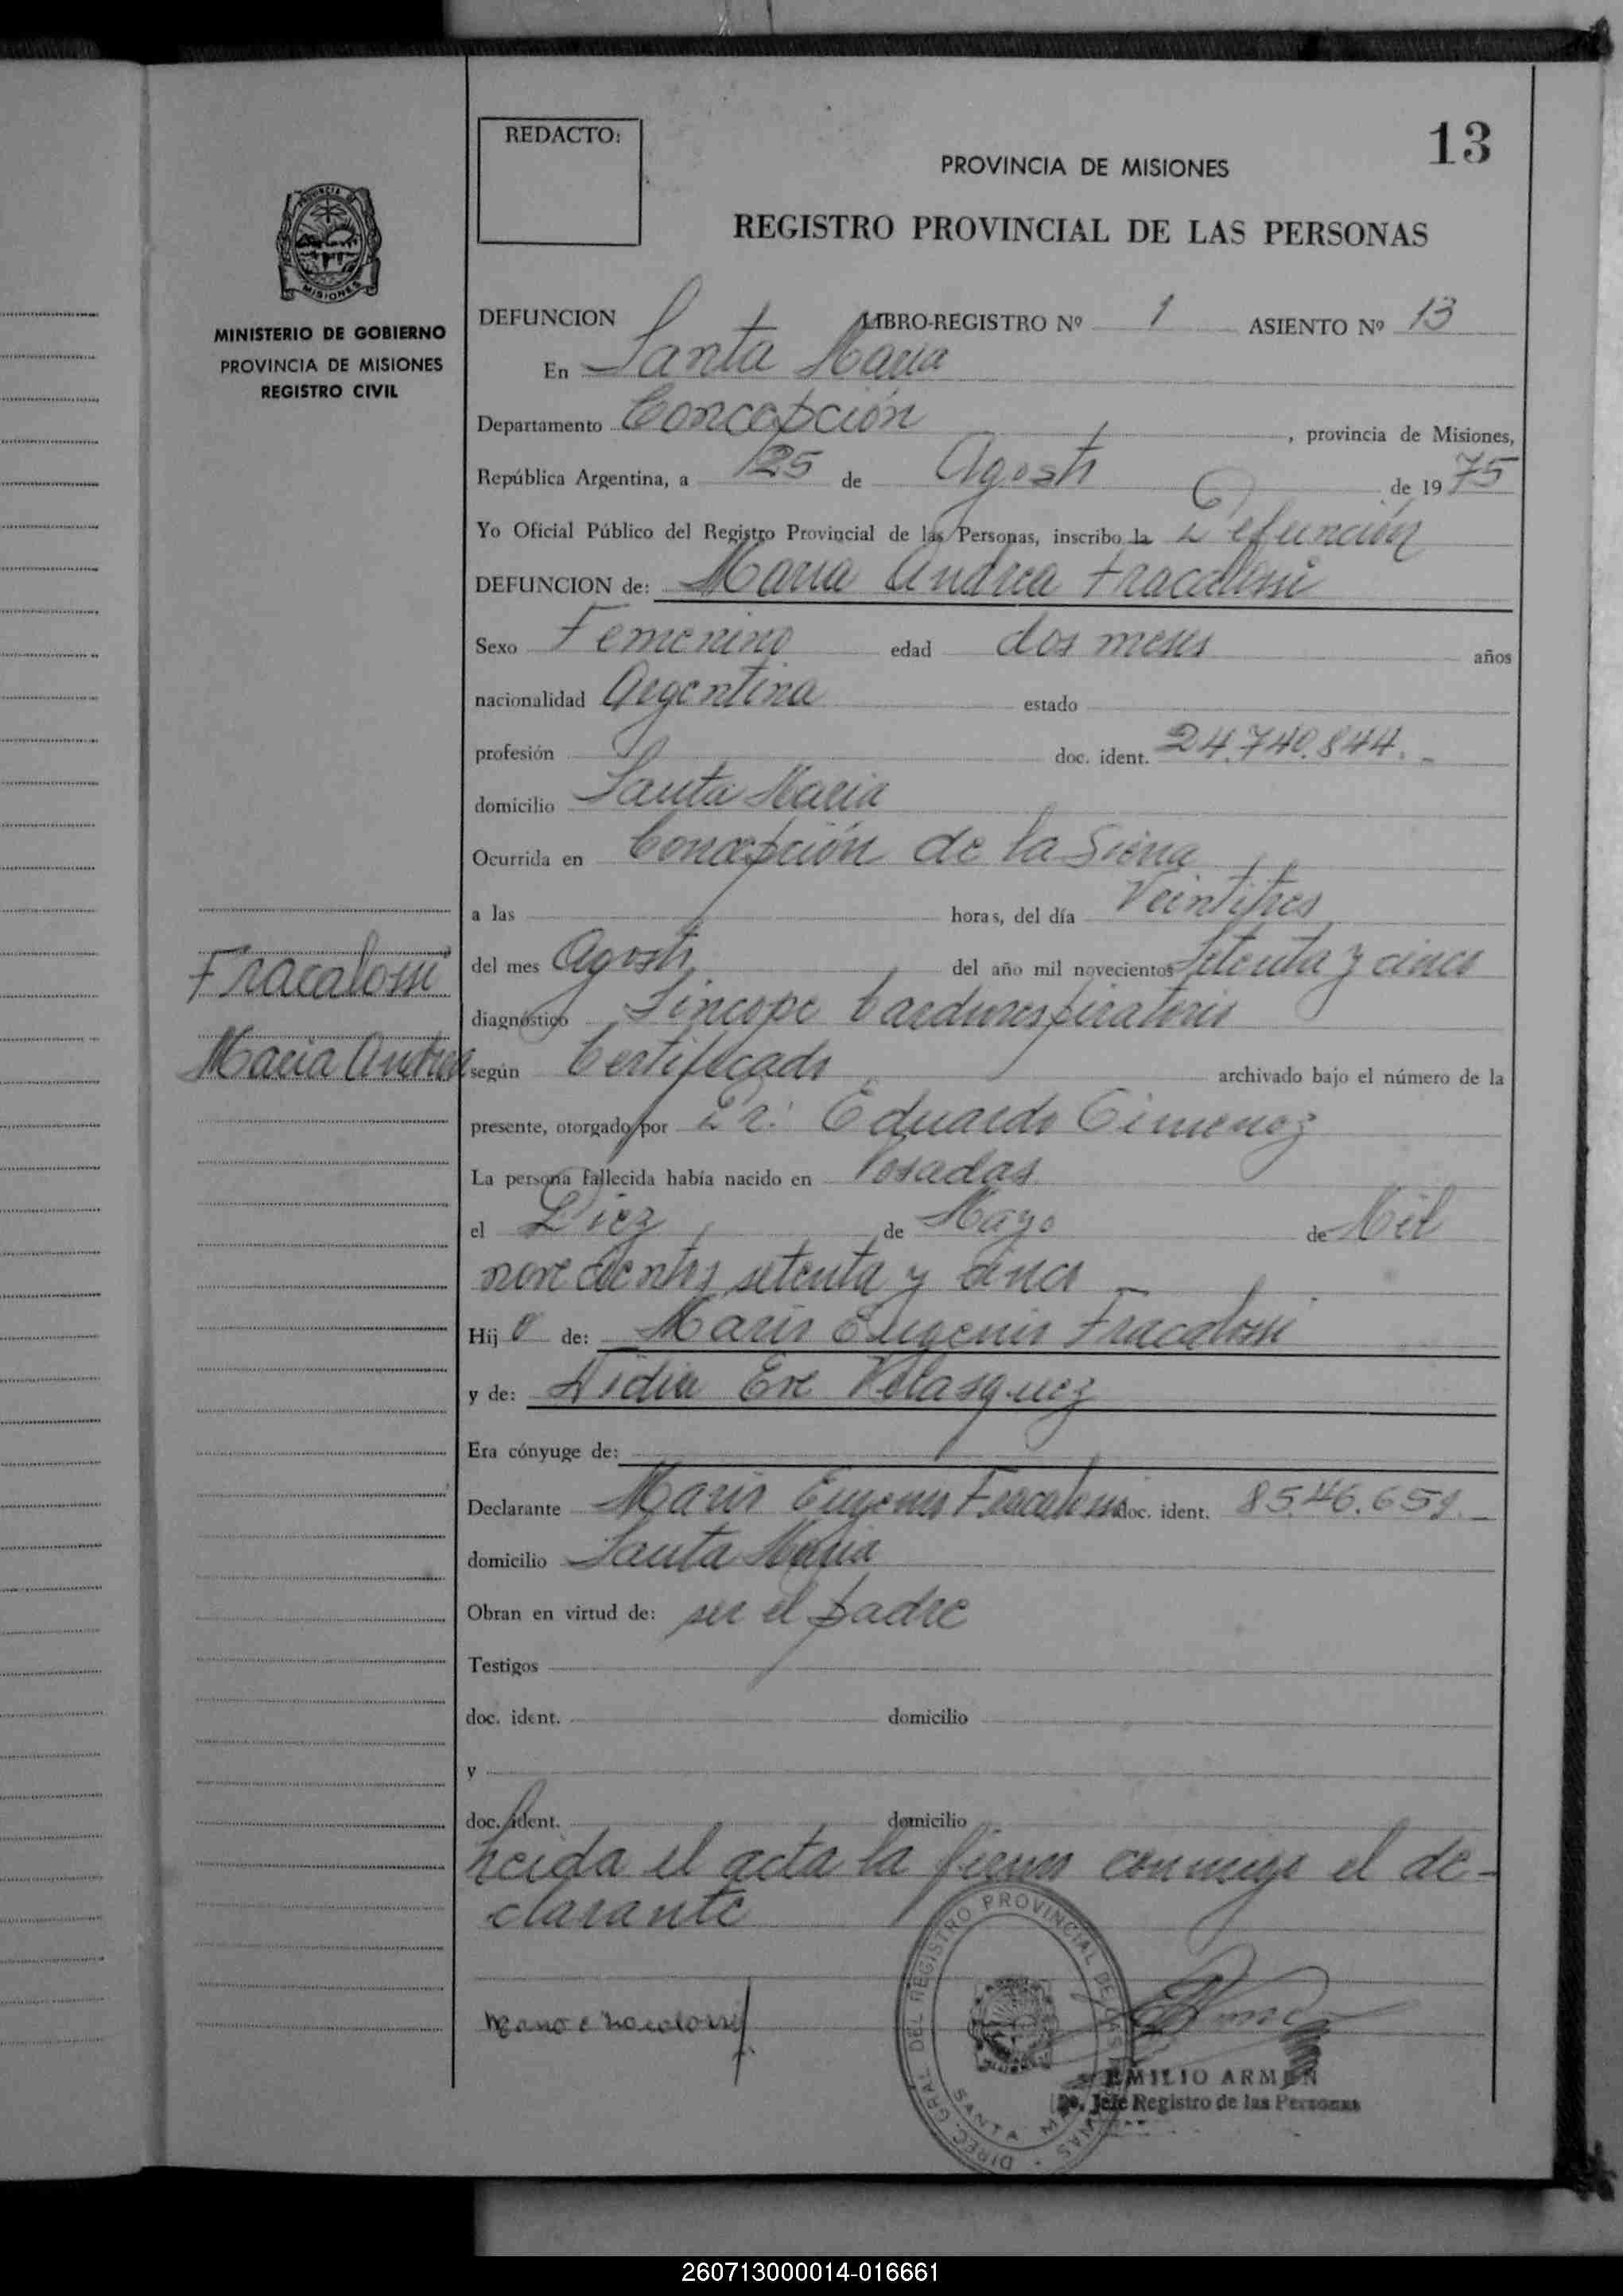 REDACTO:
13
PROVINCIA DE MISIONES
REGISTRO PROVINCIAL DE LAS PERSONAS
PROVINCIA DE
MISIONES
MINISTERIO DE GOBIERNO
PROVINCIA DE MISIONES
REGISTRO CIVIL
DEFUNCION LIBRO-REGISTRO Nº 1 ASIENTO Nº 13
En Santa Maria
Departamento Concepción, provincia de Misiones,
República Argentina, a 25 de Agosto de 1975
Yo Oficial Público del Registro Provincial de las Personas, inscribo la Defunción
DEFUNCION de: Maria Andrea Fracalossi
Sexo Femenino edad dos meses años
nacionalidad Argentina estado
profesión doc. ident. 24.740.844.-
domicilio Santa Maria
Ocurrida en Concepción de la Sierra
a las horas, del día Veintitres
del mes Agosto del año mil novecientos Setenta y cinco
diagnóstico Síncope Cardiorespiratorio
según Certificado archivado bajo el número de la
presente, otorgado por Dr. Eduardo Gimenez
La persona fallecida había nacido en Posadas
el Diez de Mayo de Mil
novecientos setenta y cinco
Hij a de: Mario Eugenio Fracalossi
y de: Nidia Eve Velasquez
Era cónyuge de:
Declarante Mario Eugenio Fracalossi doc. ident. 8.546.659.-
domicilio Santa Maria
Obran en virtud de: ser el padre
Testigos
doc. ident. domicilio
y
doc. ident. domicilio
Leida el acta la firma conmigo el de-
clarante
Fracalossi
Maria Andrea
Mario E Fracalossi
DIREC. GRAL. DEL REGISTRO PROVINCIAL DE LAS PERSONAS
SANTA MARIA
EMILIO ARMEN
Jefe Registro de las Personas
260713000014-016661